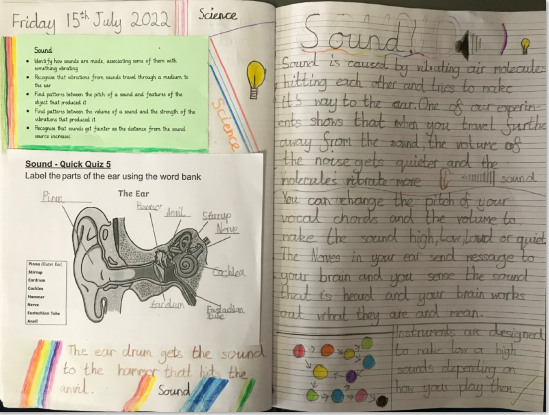 Friday 15th July 2022
Science
Sound
Identify how sounds are made, associating some of them with
something vibrating
Recognise that vibrations from sounds travel through a medium to
the ear
Find patterns between the pitch of a sound and features of the
object that produced it
Find patterns between the volume of a sound and the strength of the
vibrations that produced it
Recognise that sounds get fainter as the distance from the sound
source increases
Science
Sound - Quick Quiz 5
Label the parts of the ear using the word bank
The Ear
Anvil
Stirrup
Nerve
Cochlea
Eardrum
Eustachian
tube
Pinna (Outer Ear)
Stirrup
Eardrum
Cochlea
Hammer
Nerve
Eustachian Tube
Anvil
The ear drum gets the sound
to the that the
anvil.
Sound
Sound!
Sound is caused by vibrating air molecules
hitting each other and tries to make
it's way to the ear. One of our experim-
ents shows that when you travel further
away from the sound, the volume of
the noise gets quieter and the
molecules vibrate more
sound
You can change the pitch of your
vocal chords and the volume to
make the sound high, low, loud or quiet.
The in your ear send message to
your brain and you sense the sound
that is heard and your brain works
out what they are and mean.
Instruments are designed
to make low a high
sounds depending on
how your play them.